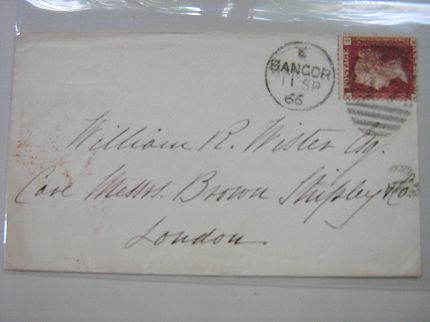 K
BANGOR
11 SP
66
POSTAGE
William R. Wister Esq.
Care Messrs. Brown Shipley & Co.
London.